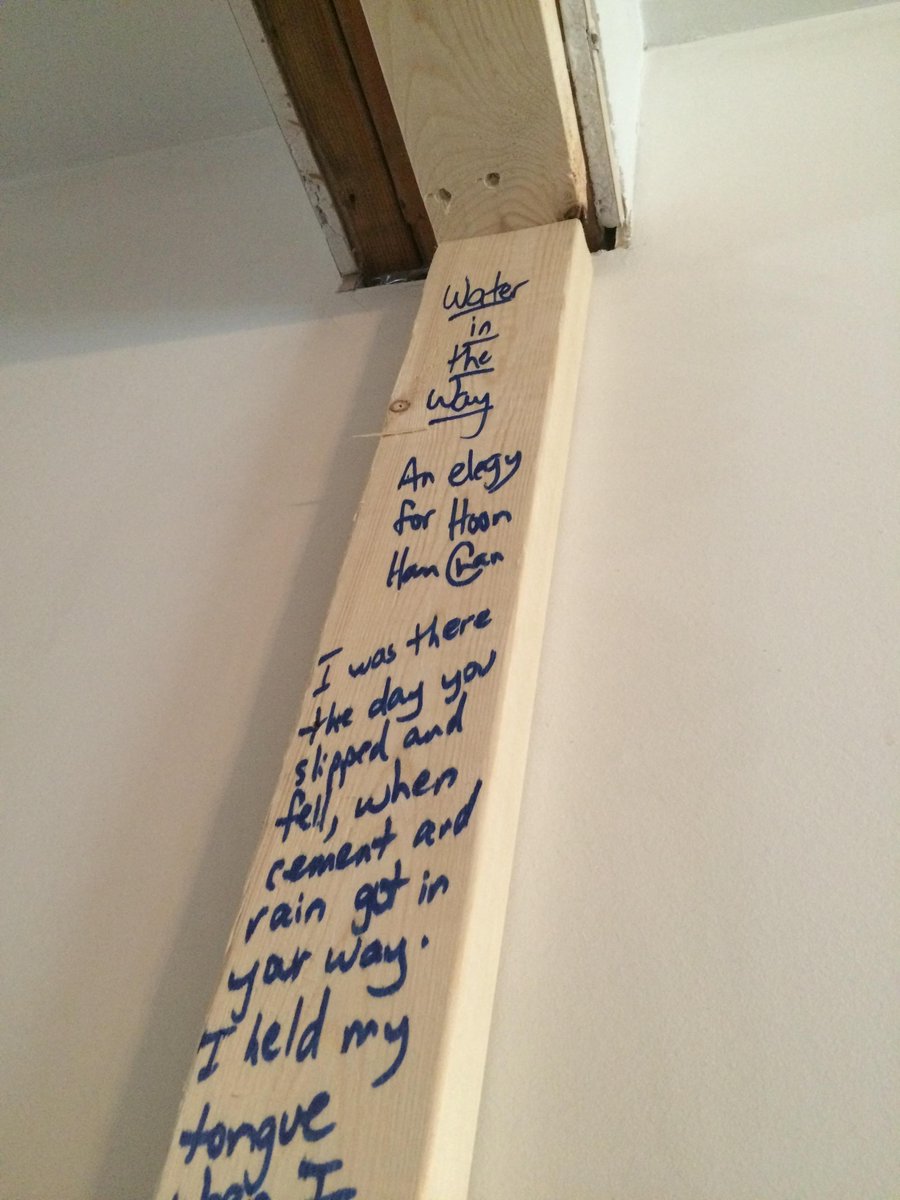 Water
in
the
Way
An elegy
for Hoon
Ham Chan
I was there
the day you
slipped and
fell, when
cement and
rain got in
your way.
I held my
tongue
when I